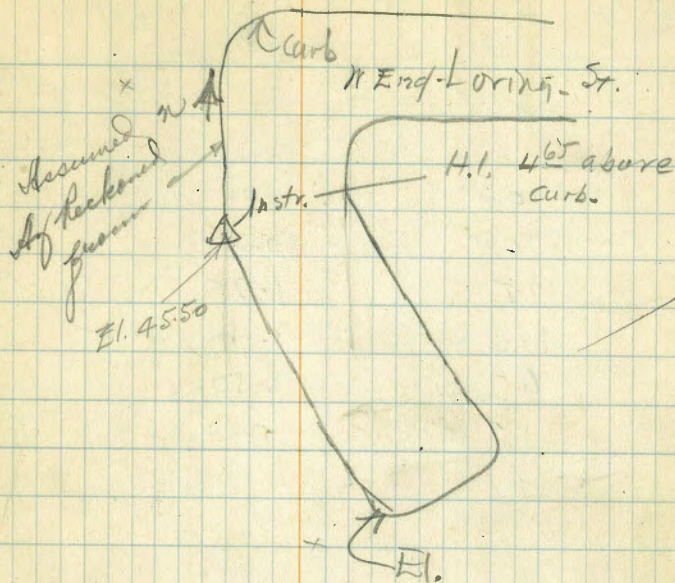 Curb
N End-Loring-St.
N
Assumed
Az Reckoned
from
H.I. 4.65 above
curb.
Instr.
El. 45.50
El.